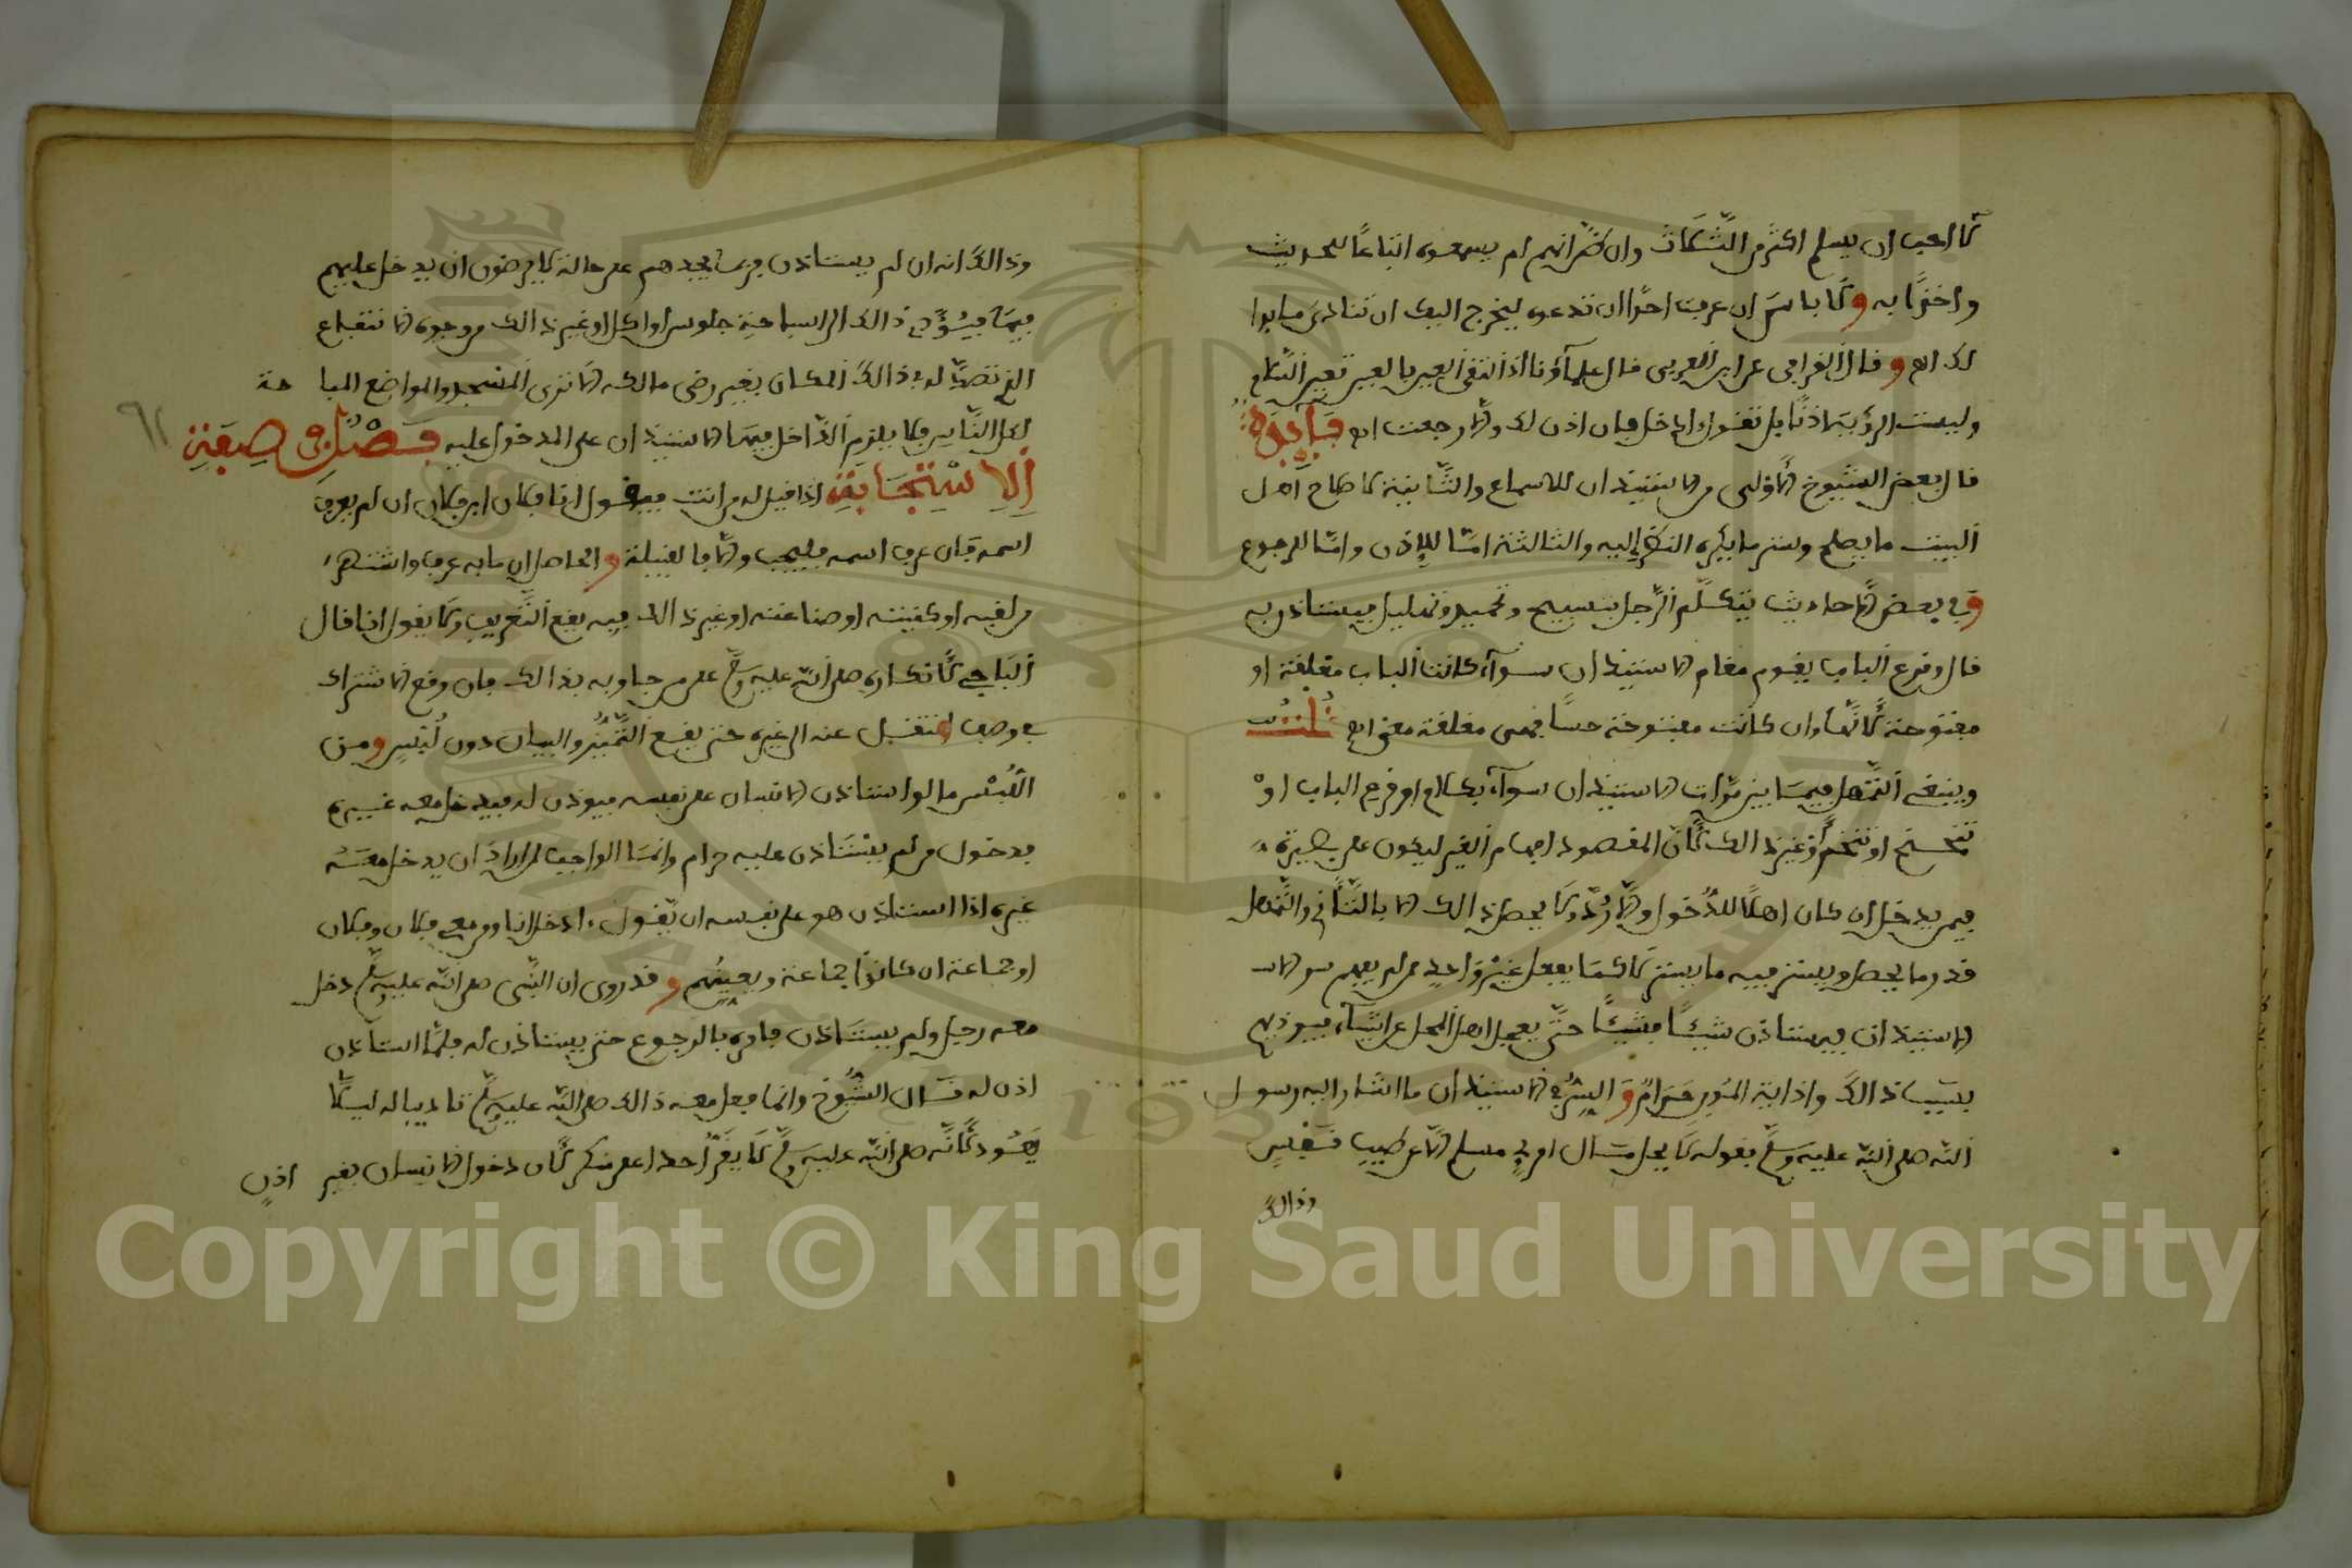 لا احب ان يسلم اكثر من الثلاث وان ظن انهم لم يسمعوه اتباعا للحديث
واخذا به ولا باس ان عرفت احدا ان تدعوه ليخرج اليك ان تنادي ما بدا
لك اهـ وقال القرافي عن ابن العربي قال علماؤنا اذا التقى العين بالعين تعين السلام
وليست الرؤية اذنا بل تقول ادخل فان اذن لك والا رجعت اهـ فايدة
قال بعض الشيوخ الاولى من الاستيذان للاسماع والثانية لاصلاح اهل
البيت ما يصلح وستر ما يكره النظر اليه والثالثة اما للاذن واما للرجوع
وفي بعض الاحاديث يتكلم الرجل بتسبيح وتحميد وتهليل يستاذن به
قال وقرع الباب يقوم مقام الاستيذان سواء كانت الباب مغلقة او
مفتوحة لانها وان كانت مفتوحة حسا فهي مغلقة معنى اهـ قلت
وينبغي التمهل فيما بين مرات الاستيذان سواء بكلام او قرع الباب او
تنحنح او تنخم او غير ذالك لان المقصود افهام الغير ليكون على بصيرة
فيمن يدخل ان كان اهلا للدخول والا رد ولا يحصل ذالك الا بالتاني والتمهل
قدر ما يحصل ويستر فيه ما يستر لا كما يفعل غير واحد ممن لم يفهم سر الا
الاستيذان فيستاذن شيئا فشيئا حتى يعجل اهل المحل عن اشياء فيوذيهم
بسبب ذالك واذاية المومن حرام والسر في الاستيذان ما اشار اليه رسول
الله صلى الله عليه وسلم بقوله لا يحل مال امرئ مسلم الا عن طيب نفس
وذالك
وذالك انه ان لم يستاذن فربما يجدهم على حالة لا يرضون ان يدخل عليهم
فيها فيؤدي ذالك الى استباحة جلوس او اكل او غير ذالك من وجوه الانتفاع
التي تقصد له في ذالك المكان بغير رضى مالكه الا ترى المسجد والمواضع المبا حة
لكل الناس فلا يلزم الداخل فيها الاستيذان على المدخول عليه فصل في صفة
٩٢
الاستجابة اذا قيل له من انت فيقول انا فلان ابن فلان ان لم يعرف
اسمه فان عرف اسمه فليجب والا فالقبيلة والحاصل ان ما به عرف واشتهر
من لقبه او كنيته او صناعته او غير ذالك فبه يقع التعريف ولا يقول انا قال
الباجي لانكاره صلى الله عليه وسلم على من جاوبه بذالك فان وقع الاشتراك
في وصف انتقل عنه الى غيره حتى يقع التمييز والبيان دون لبس ومن
اللبس ما لو استاذن الانسان على نفسه فيوذن له فيدخل معه غيره
فدخول من لم يستاذن عليه حرام وانما الواجب لمن اراد ان يدخل معه
غيره اذا استاذن هو على نفسه ان يقول ادخل انا ومن معي فلان وفلان
او جماعة ان كانوا جماعة ويعينهم وقد روي ان النبي صلى الله عليه وسلم دخل
معه رجل ولم يستاذن فامره بالرجوع حتى يستاذن له فلما استاذن
اذن له قال الشيوخ وانما فعل معه ذالك صلى الله عليه وسلم تاديبا له ليلا
يعود لانه صلى الله عليه وسلم لا يقر احدا على منكر لان دخول الانسان بغير اذن
Copyright © King Saud University